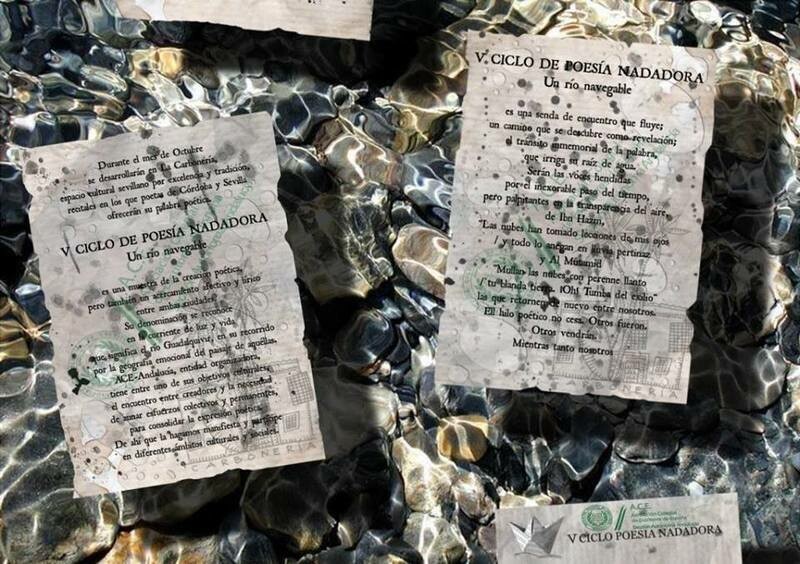 Durante el mes de Octubre
se desarrollarán en La Carbonería,
espacio cultural sevillano por excelencia y tradición,
recitales en los que poetas de Córdoba y Sevilla
ofrecerán su palabra poética.
V CICLO DE POESÍA NADADORA
Un río navegable
es una muestra de la creación poética,
pero también un acercamiento afectivo y lírico
entre ambas ciudades.
Su denominación se reconoce
en la corriente de luz y vida
que significa el río Guadalquivir, en su recorrido
por la geografía emocional del paisaje de aquellas.
ACE-Andalucía, entidad organizadora,
tiene entre uno de sus objetivos culturales,
el encuentro entre creadores y la necesidad
de aunar esfuerzos colectivos y permanentes,
para consolidar la expresión poética.
De ahí que la hagamos manifiesta y partícipe
en diferentes ámbitos culturales y sociales.
CARBONERIA
V CICLO DE POESÍA NADADORA
Un río navegable
es una senda de encuentro que fluye;
un camino que se descubre como revelación;
el tránsito inmemorial de la palabra,
que irriga su raíz de agua.
Serán las voces hendidas
por el inexorable paso del tiempo,
pero palpitantes en la transparencia del aire,
de Ibn Hazm,
"Las nubes han tomado lecciones de mis ojos
/ y todo lo anegan en lluvia pertinaz
y Al Mutamid
"Mullan las nubes con perenne llanto
/ tu blanda tierra, ¡Oh! Tumba del exilio"
las que retornen de nuevo entre nosotros.
El hilo poético no cesa. Otros fueron.
Otros vendrán.
Mientras tanto nosotros
A.C.E.
V CICLO POESIA NADADORA